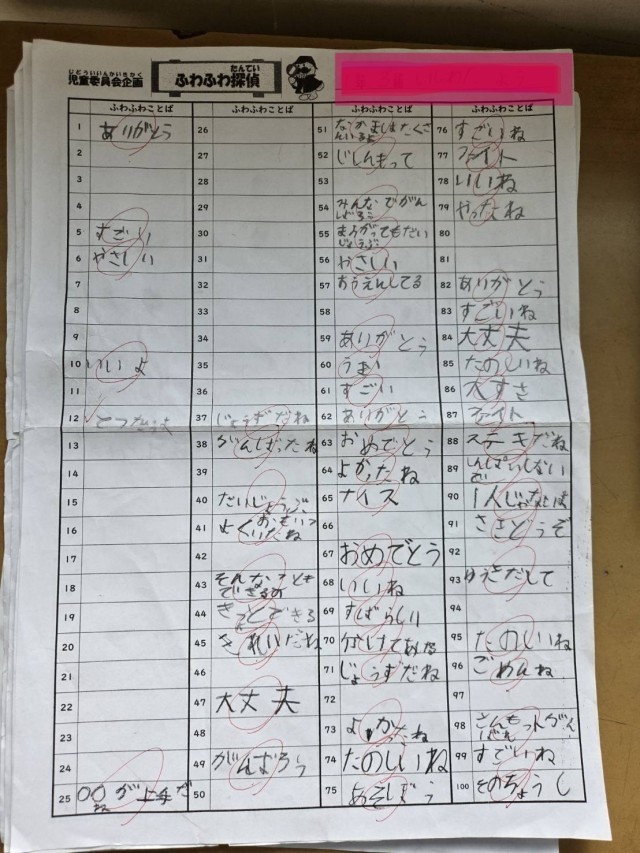 じどういいんかいきかく
児童委員会企画
たんてい
ふわふわ探偵
ふわふわことば
1 ありがとう
2
3
4
5 すごい
6 やさしい
7
8
9
10 いいよ
11
12
13
14
15
16
17
18
19
20
21
22
23
24
25 〇〇が上手だね
ふわふわことば
26
27
28
29
30
31
32
33
34
35
36
37 じょうずだね
38 がんばったね
39
40 だいじょうぶ
41 よくおもいついたね
42
43 そんなことも
できるの
44 きっとできる
45 きれいだね
46
47 大丈夫
48
49 がんばろう
50
ふわふわことば
51 なかまはたくさ
んいるよ
52 じしんもって
53
54 みんなでがん
ばろう
55 まちがってもだい
じょうぶ
56 やさしい
57 おうえんしてる
58
59 ありがとう
60 うまい
61 すごい
62 ありがとう
63 おめでとう
64 よかったね
65 ナイス
66
67 おめでとう
68 いいね
69 すばらしい
70
71 じょうずだね
72
73 よかったね
74 たのしいね
75 あそぼう
ふわふわことば
76 すごいね
77 ファイト
78 いいね
79 やったね
80
81
82 ありがとう
83 すごいね
84 大丈夫
85 たのしいね
86 大すき
87 ファイト
88 ステキだね
89 しんぱいしない
で
90 1人じゃないよ
91 さきどうぞ
92
93 ゆうきだして
94
95 たのしいね
96 ごめんね
97
98
99 すごいね
100 そのちょうし